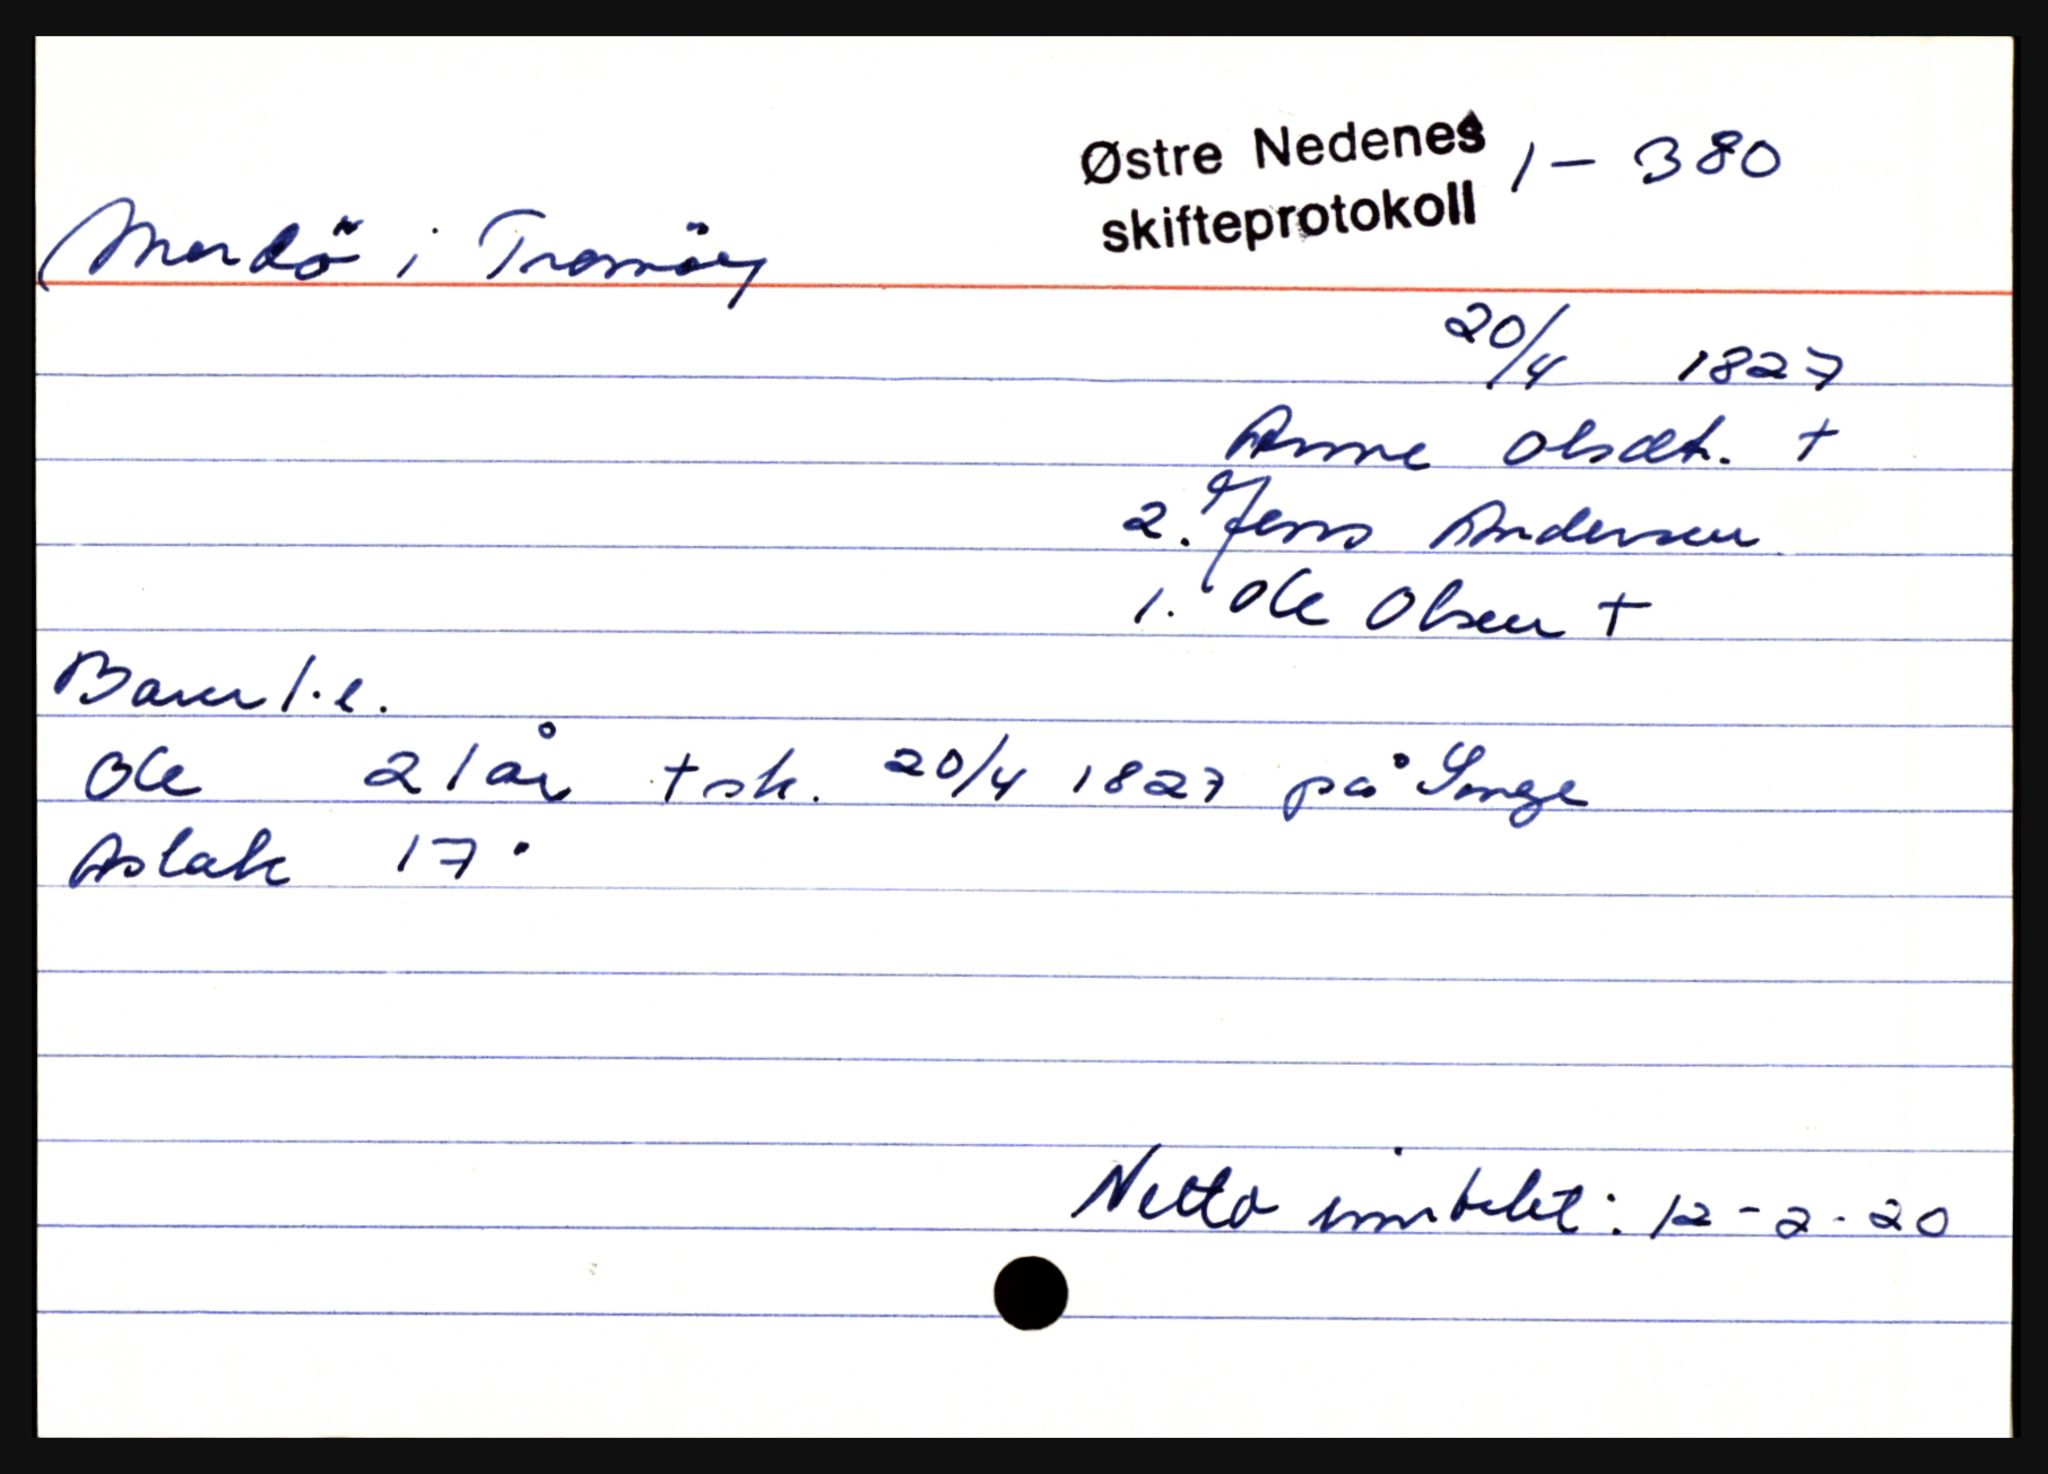 Østre Nedenes 1 - 380
skifteprotokoll
Merdö i Tromöy
20/4 1827
Anne Olsdt. +
2. g/ Jens Andersen
1. Ole Olsen +
Barn 1. e.
Ole 21 år + sk. 20/4 1827 på Songe
Aslak 17 "
Netto innbelet : 12 - 2 - 20